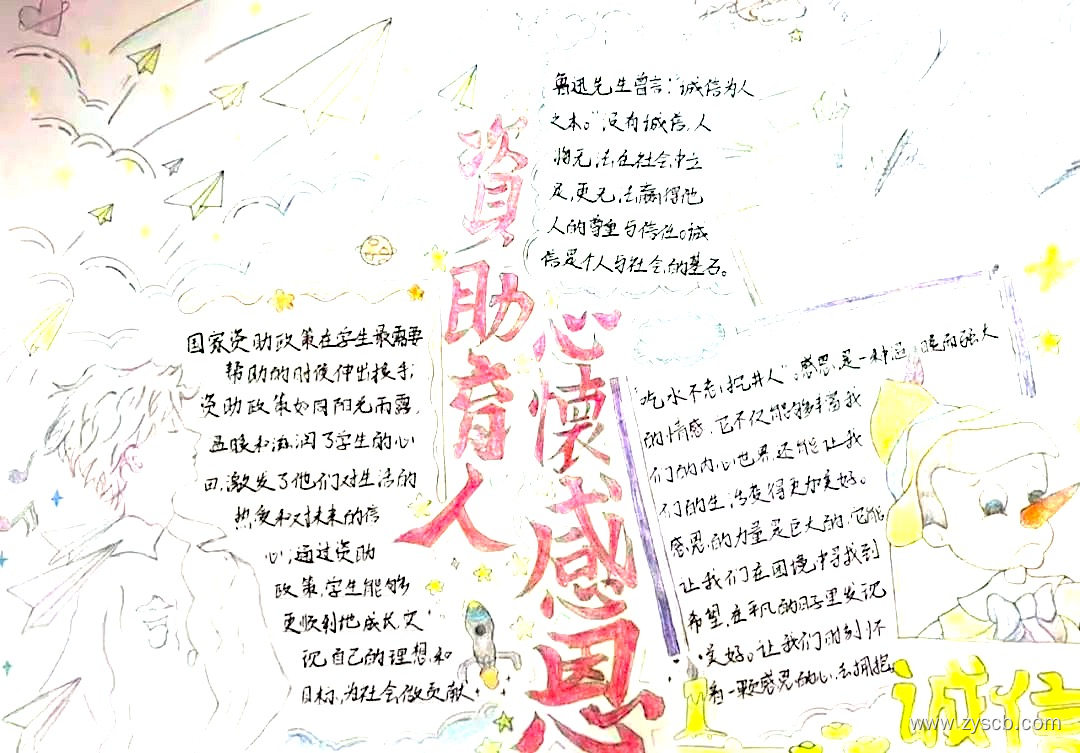 資助育人
心懷感恩
鲁迅先生曾言:"诚信为人
之本。"没有诚信,人
将无法在社会中立
足,更无法赢得他
人的尊重与信任。诚
信是个人与社会的基石。
国家资助政策在学生最需要
帮助的时候伸出援手,
资助政策如同阳光雨露,
温暖和滋润了学生的心
田,激发了他们对生活的
热爱和对未来的信
心,通过资助
政策,学生能够
更顺利地成长,实
现自己的理想和
目标,为社会做贡献.
"吃水不忘挖井人",感恩,是一种温暖而强大
的情感,它不仅能够丰富我
们的内心世界,还能让我
们的生活变得更加美好。
感恩的力量是巨大的,它能
让我们在困境中寻找到
希望,在平凡的日子里发现
美好。让我们时刻怀
着一颗感恩的心,去拥抱
诚信
www.zyscb.com